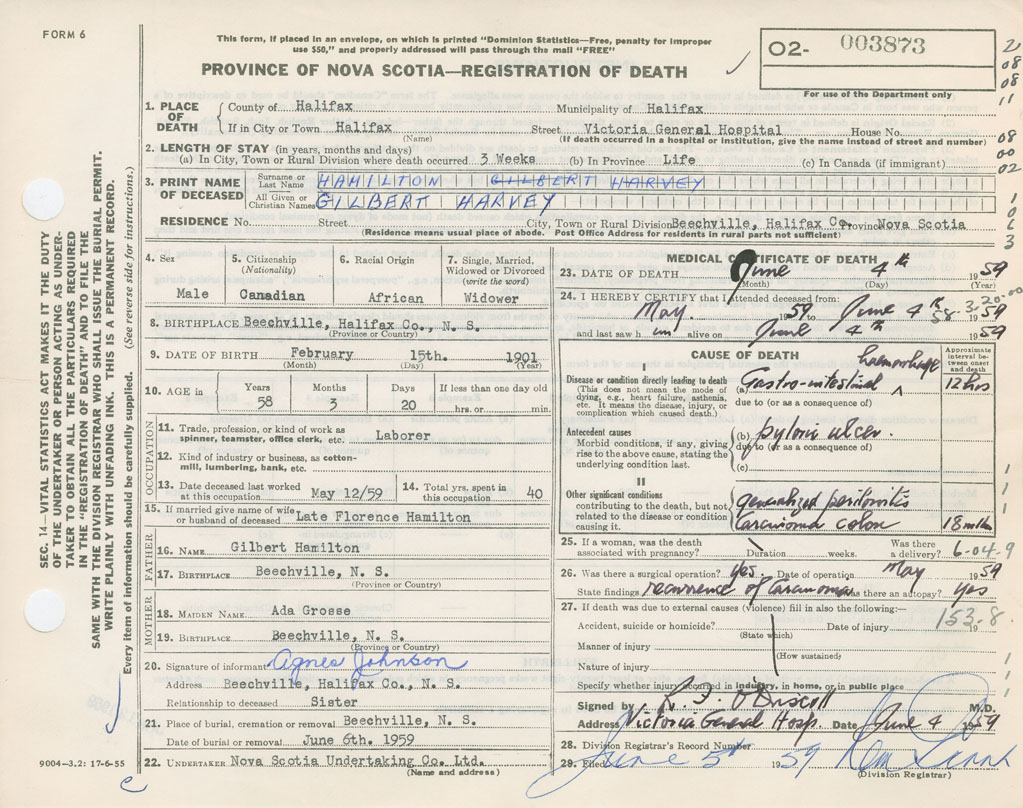 FORM 6
This form, if placed in an envelope, on which is printed "Dominion Statistics—Free, penalty for improper
use $50," and properly addressed will pass through the mail "FREE"
PROVINCE OF NOVA SCOTIA—REGISTRATION OF DEATH
O2- 003873
For use of the Department only
1. PLACE OF DEATH County of Halifax Municipality of Halifax
If in City or Town Halifax Street Victoria General Hospital House No.
(Name) (If death occurred in a hospital or institution, give the name instead of street and number)
2. LENGTH OF STAY (in years, months and days)
(a) In City, Town or Rural Division where death occurred 3 Weeks (b) In Province Life (c) In Canada (if immigrant)
3. PRINT NAME OF DECEASED Surname or Last Name HAMILTON GILBERT HARVEY
All Given or Christian Names GILBERT HARVEY
RESIDENCE No. Street City, Town or Rural Division Beechville, Halifax Co. Province Nova Scotia
(Residence means usual place of abode. Post Office Address for residents in rural parts not sufficient)
4. Sex Male
5. Citizenship (Nationality) Canadian
6. Racial Origin African
7. Single, Married, Widowed or Divorced (write the word) Widower
8. BIRTHPLACE Beechville, Halifax Co., N. S.
(Province or Country)
9. DATE OF BIRTH February 15th. 1901
(Month) (Day) (Year)
10. AGE in Years 58 Months 3 Days 20 If less than one day old hrs. or min.
OCCUPATION
11. Trade, profession, or kind of work as spinner, teamster, office clerk, etc. Laborer
12. Kind of industry or business, as cotton-mill, lumbering, bank, etc.
13. Date deceased last worked at this occupation May 12/59
14. Total yrs. spent in this occupation 40
15. If married give name of wife or husband of deceased Late Florence Hamilton
FATHER
16. NAME Gilbert Hamilton
17. BIRTHPLACE Beechville, N. S.
(Province or Country)
MOTHER
18. MAIDEN NAME Ada Grosse
19. BIRTHPLACE Beechville, N. S.
(Province or Country)
20. Signature of informant Agnes Johnson
Address Beechville, Halifax Co., N. S.
Relationship to deceased Sister
21. Place of burial, cremation or removal Beechville, N. S.
Date of burial or removal June 6th. 1959
22. UNDERTAKER Nova Scotia Undertaking Co. Ltd.
(Name and address)
MEDICAL CERTIFICATE OF DEATH
23. DATE OF DEATH June 4th 1959
(Month) (Day) (Year)
24. I HEREBY CERTIFY that I attended deceased from:
May 1959 to June 4th 1959
and last saw him alive on June 4th 1959
CAUSE OF DEATH
Approximate interval between onset and death
I
Disease or condition directly leading to death
(This does not mean the mode of dying, e.g., heart failure, asthenia, etc. It means the disease, injury, or complication which caused death.)
(a) Gastro-intestinal haemorrhage 12 hrs
due to (or as a consequence of)
Antecedent causes
Morbid conditions, if any, giving rise to the above cause, stating the underlying condition last.
(b) pyloric ulcer.
due to (or as a consequence of)
(c)
II
Other significant conditions contributing to the death, but not related to the disease or condition causing it.
generalized peritonitis
Carcinoma colon 18 mths
25. If a woman, was the death associated with pregnancy? Duration weeks. Was there a delivery? 6-04-9
26. Was there a surgical operation? Yes. Date of operation May 1959
State findings recurrence of Carcinoma Was there an autopsy? Yes
27. If death was due to external causes (violence) fill in also the following:— 153-8
Accident, suicide or homicide? Date of injury 19
(State which)
Manner of injury
(How sustained)
Nature of injury
Specify whether injury occurred in industry, in home, or in public place
Signed by R. J. O'Driscoll M.D.
Address Victoria General Hosp. Date June 4 1959
28. Division Registrar's Record Number
29. Filed June 5th 1959
(Division Registrar)
SEC. 14—VITAL STATISTICS ACT MAKES IT THE DUTY
OF THE UNDERTAKER OR PERSON ACTING AS UNDER-
TAKER TO OBTAIN ALL THE PARTICULARS REQUIRED
IN THE "REGISTRATION OF DEATH" AND TO FILE THE
SAME WITH THE DIVISION REGISTRAR WHO SHALL ISSUE THE BURIAL PERMIT.
WRITE PLAINLY WITH UNFADING INK. THIS IS A PERMANENT RECORD.
Every item of information should be carefully supplied. (See reverse side for instructions.)
9004—3.2: 17-6-55